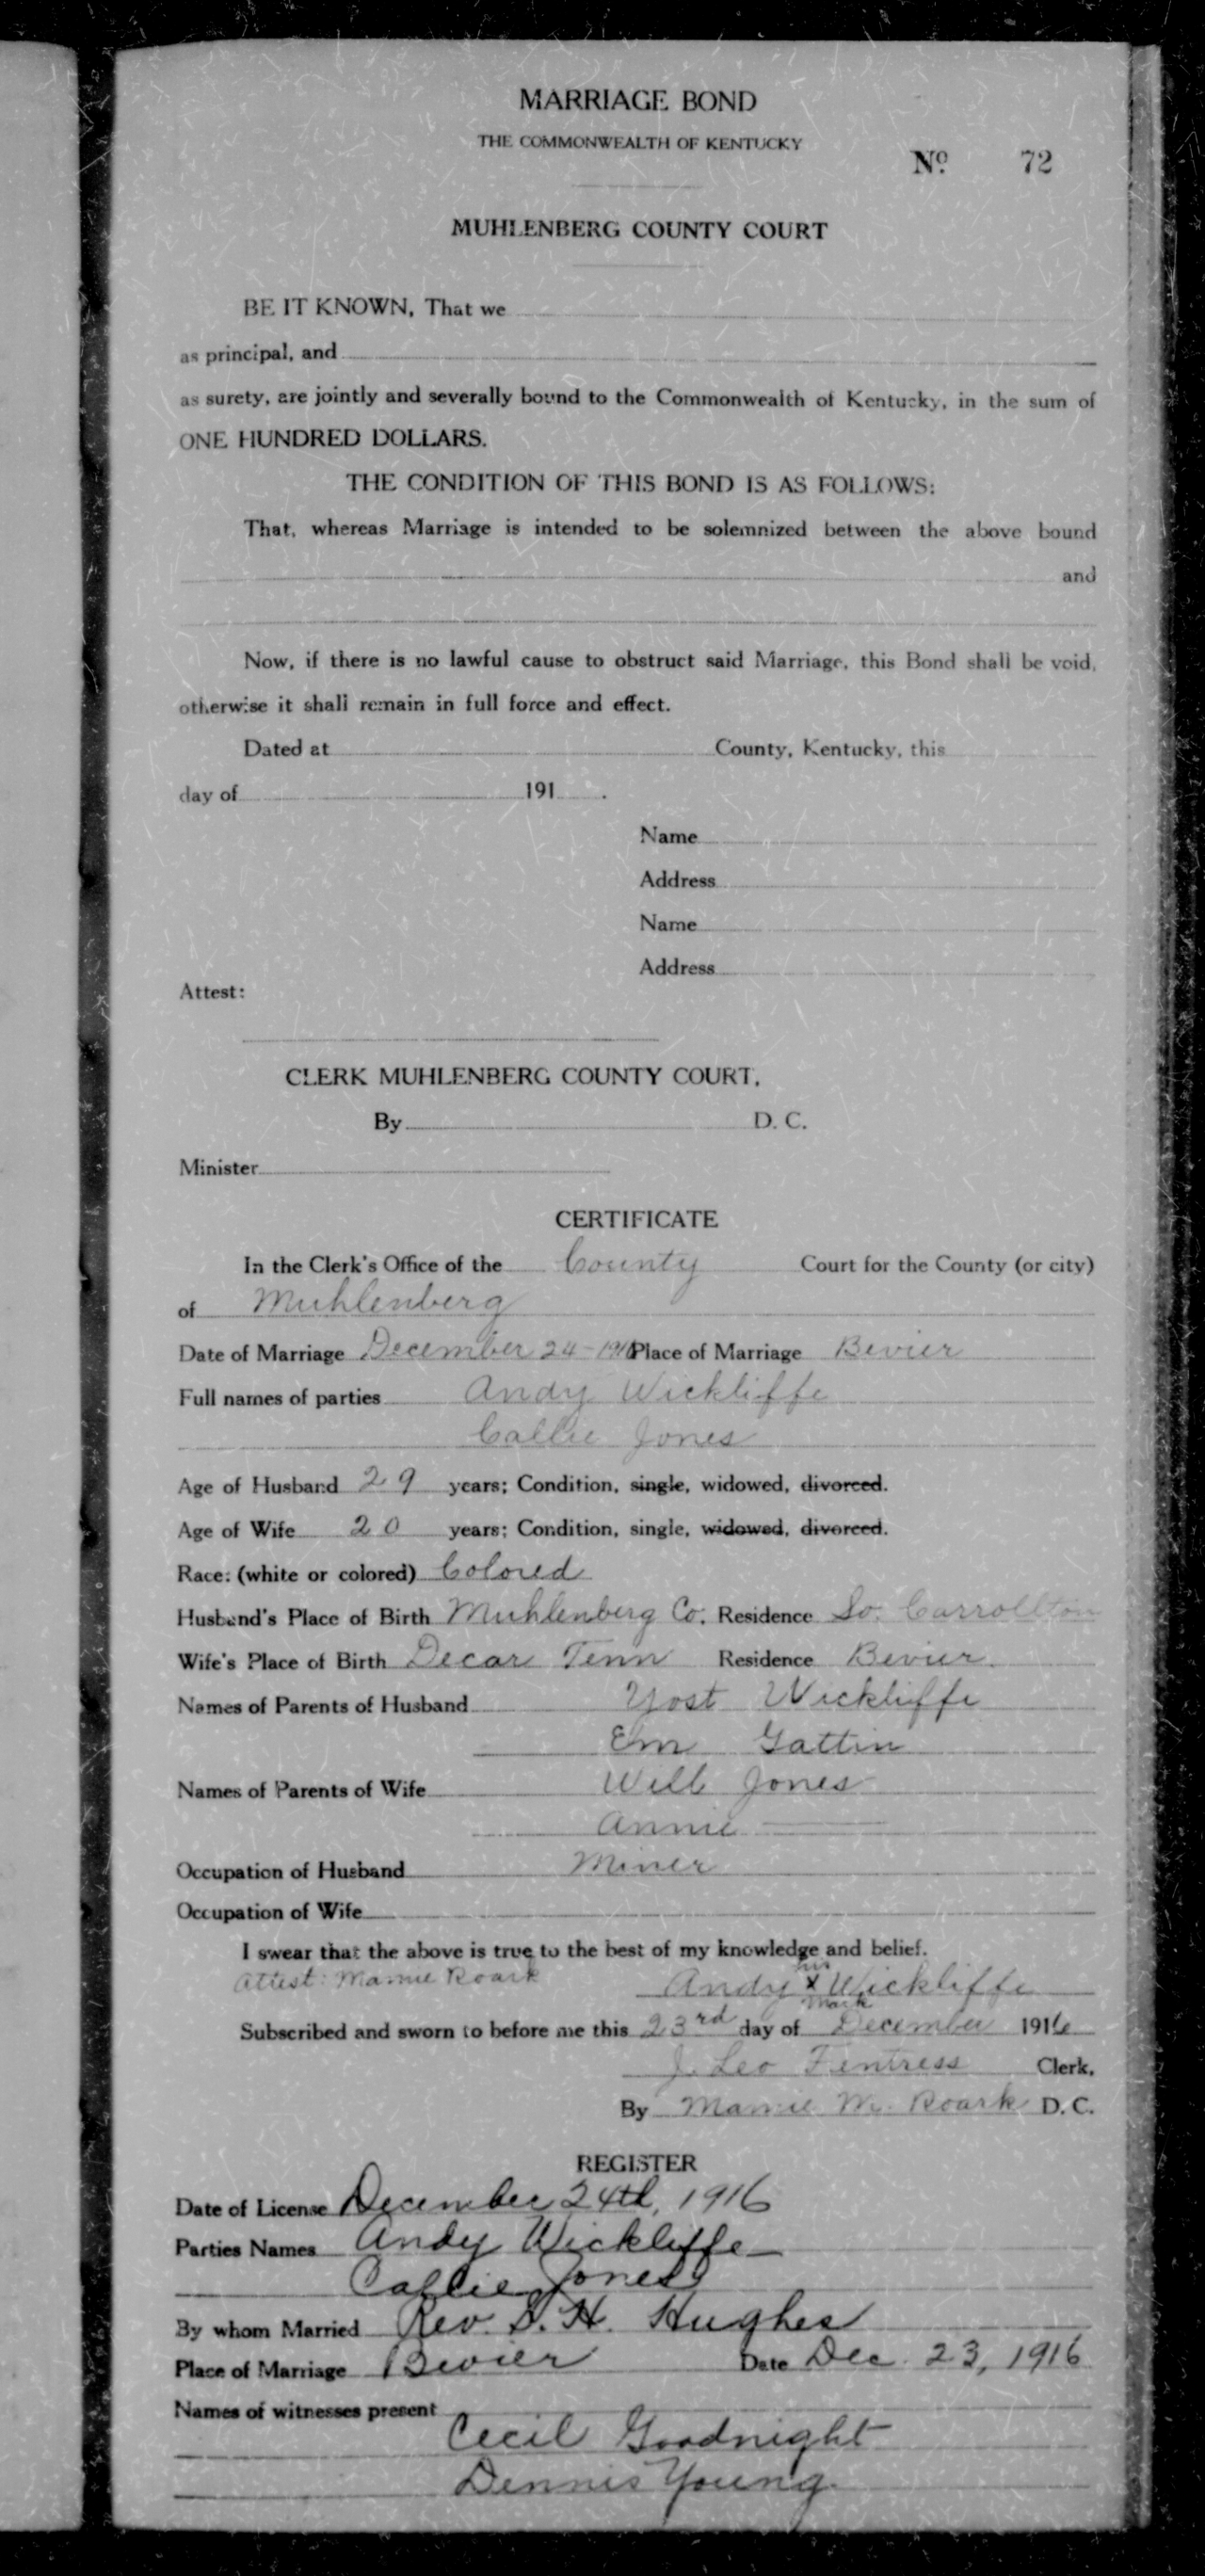 MARRIAGE BOND
THE COMMONWEALTH OF KENTUCKY
No. 72
MUHLENBERG COUNTY COURT
BE IT KNOWN, That we
as principal, and
as surety, are jointly and severally bound to the Commonwealth of Kentucky, in the sum of
ONE HUNDRED DOLLARS.
THE CONDITION OF THIS BOND IS AS FOLLOWS:
That, whereas Marriage is intended to be solemnized between the above bound
and
Now, if there is no lawful cause to obstruct said Marriage, this Bond shall be void,
otherwise it shall remain in full force and effect.
Dated at County, Kentucky, this
day of 191 .
Name
Address
Name
Address
Attest:
CLERK MUHLENBERG COUNTY COURT.
By D. C.
Minister
CERTIFICATE
In the Clerk's Office of the County Court for the County (or city)
of Muhlenberg
Date of Marriage December 24-1916 Place of Marriage Bevier
Full names of parties Andy Wickliffe
Callie Jones
Age of Husband 29 years; Condition, single, widowed, divorced.
Age of Wife 20 years; Condition, single, widowed, divorced.
Race: (white or colored) Colored
Husband's Place of Birth Muhlenberg Co. Residence So. Carrollton
Wife's Place of Birth Decar Tenn Residence Bevier.
Names of Parents of Husband Yost Wickliffe
Em Gattin
Names of Parents of Wife Will Jones
Annie
Occupation of Husband Miner
Occupation of Wife
I swear that the above is true to the best of my knowledge and belief.
Attest: Mamie Roark Andy his x mark Wickliffe
Subscribed and sworn to before me this 23rd day of December 1916
J. Leo Fentress Clerk.
By Mamie M. Roark D. C.
REGISTER
Date of License December 24th, 1916
Parties Names Andy Wickliffe
Callie Jones
By whom Married Rev. S. H. Hughes
Place of Marriage Bevier Date Dec. 23, 1916
Names of witnesses present
Cecil Goodnight
Dennis Young.